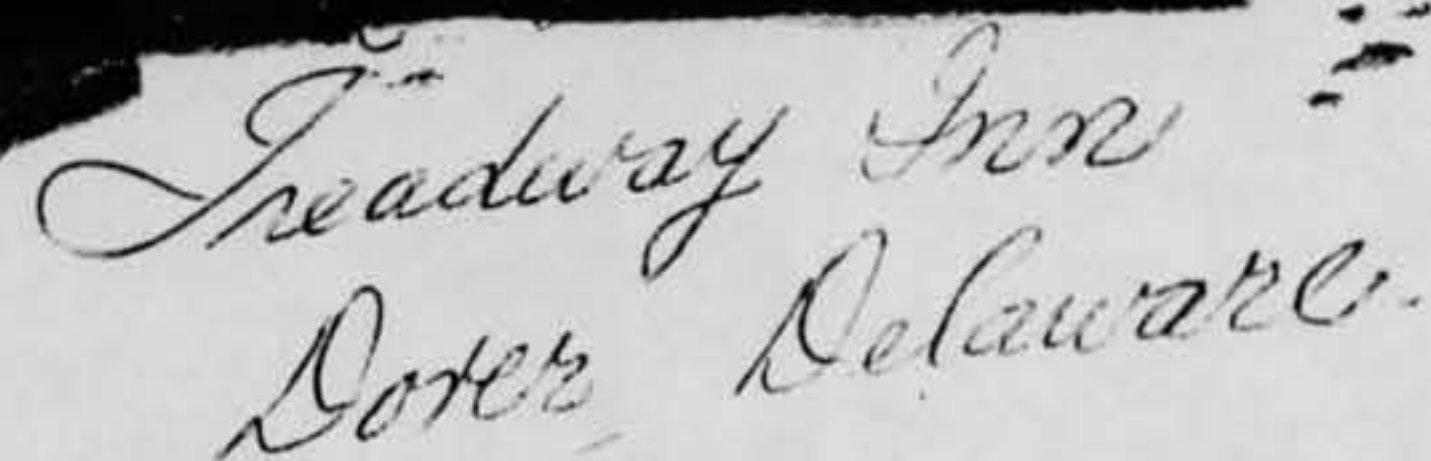 Treadway Inn
Dover, Delaware.